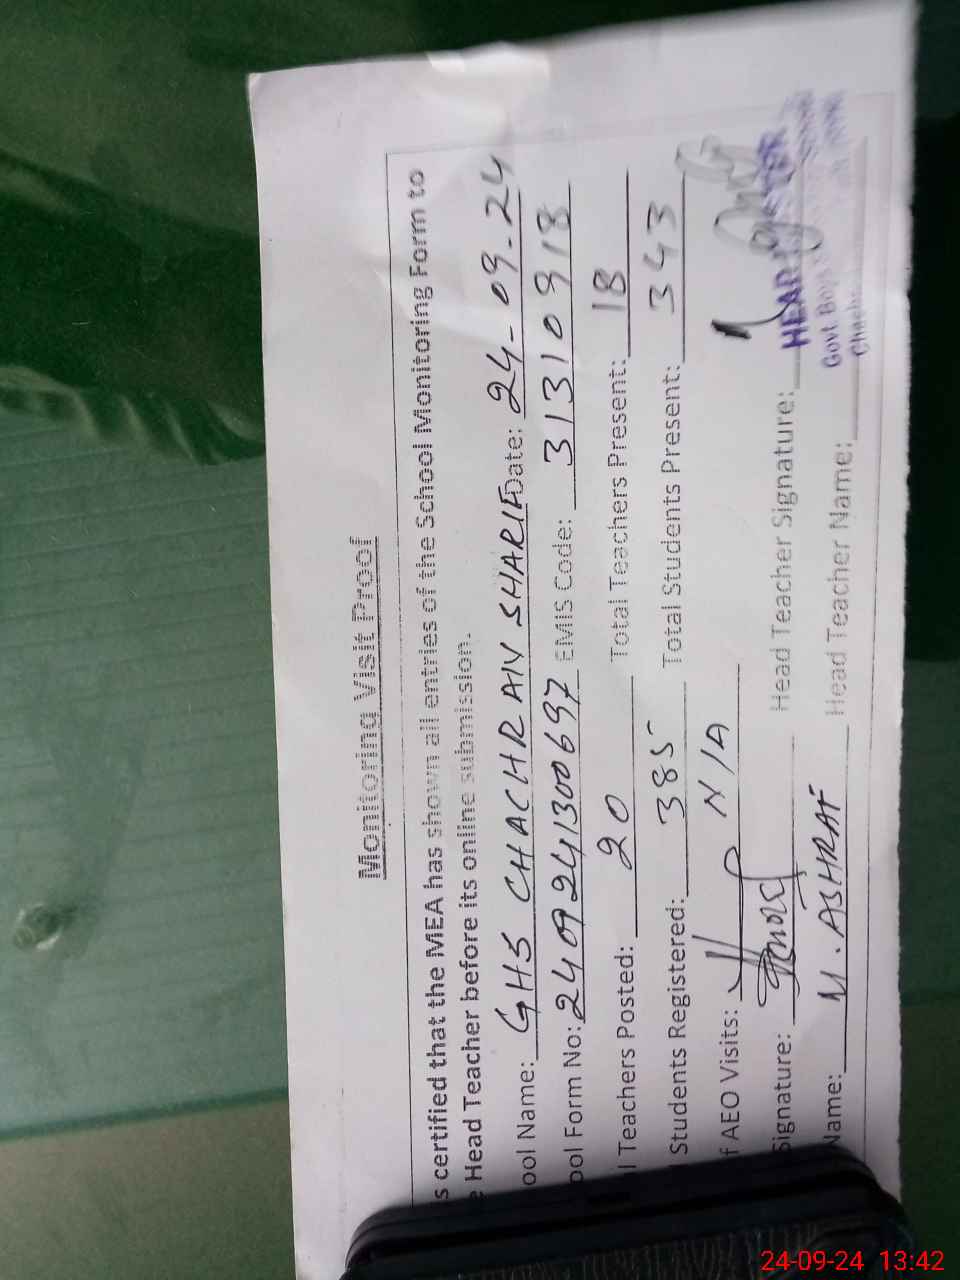 Monitoring Visit Proof
s certified that the MEA has shown all entries of the School Monitoring Form to
e Head Teacher before its online submission.
ool Name: GHS CHACHRAN SHARIF Date: 24-09-24
ool Form No: 2409241300697 EMIS Code: 31310918
l Teachers Posted: 20 Total Teachers Present: 18
Students Registered: 385 Total Students Present: 343
f AEO Visits: N/A
Signature: Head Teacher Signature:
HEADMASTER
Name: M. ASHRAF Head Teacher Name:
Govt. Boys
24-09-24 13:42